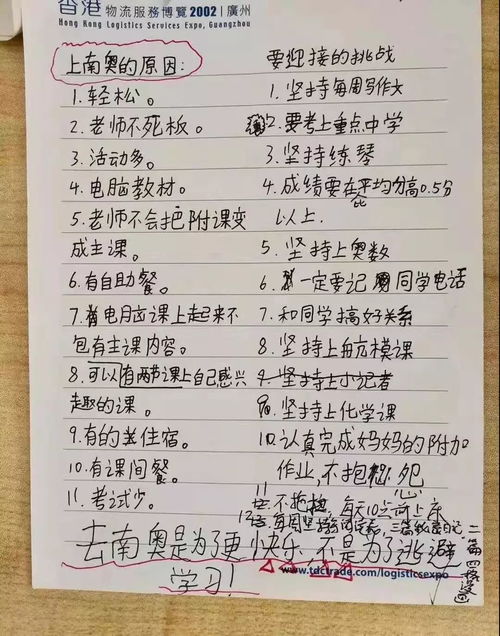 香港 物流服務博覽 2002 | 廣州
Hong Kong Logistics Services Expo, Guangzhou
上南奥的原因:
1.轻松。
2.老师不死板。
3.活动多。
4.电脑教材。
5.老师不会把附课变
成主课。
6.有自助餐。
7.电脑课上起来不
包有主课内容。
8.可以有两节课上自己感兴
趣的课。
9.有的住宿。
10.有课间餐。
11.考试少。
要迎接的挑战
1.坚持每周写作文
2.要考上重点中学
3.坚持练琴
4.成绩要在平均分高0.5分
比
以上.
5.坚持上奥数
6.一定要记同学电话
7.和同学搞好关系
8.坚持上航模课
9.坚持上小记者
10.坚持上化学课
10.认真完成妈妈的附加
作业,不抱怨
11.不拖拉,每天10点前上床
12.每周坚持
去南奥是为了更快乐 不是为了逃避
学习!
www.tdctrade.com/logisticsexpo